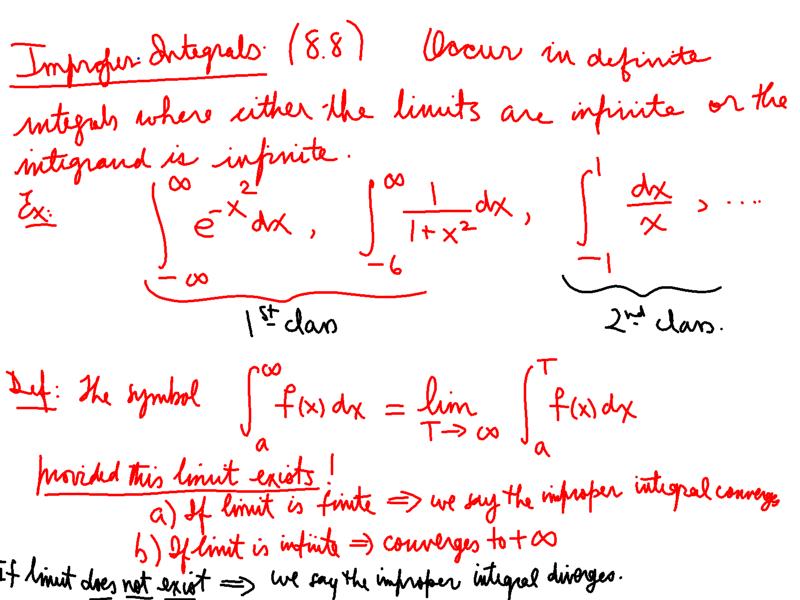 Improper Integrals (8.8) Occur in definite
integrals where either the limits are infinite or the
integrand is infinite.
Ex: ∫_{-∞}^{∞} e^{-x^2} dx, ∫_{-6}^{∞} 1/(1+x^2) dx, ∫_{-1}^{1} dx/x, ....
1st class 2nd class.
Def: The symbol ∫_a^∞ f(x) dx = lim_{T→∞} ∫_a^T f(x) dx
provided this limit exists!
a) If limit is finite ⇒ we say the improper integral converges
b) If limit is infinite ⇒ converges to +∞
If limit does not exist ⇒ we say the improper integral diverges.